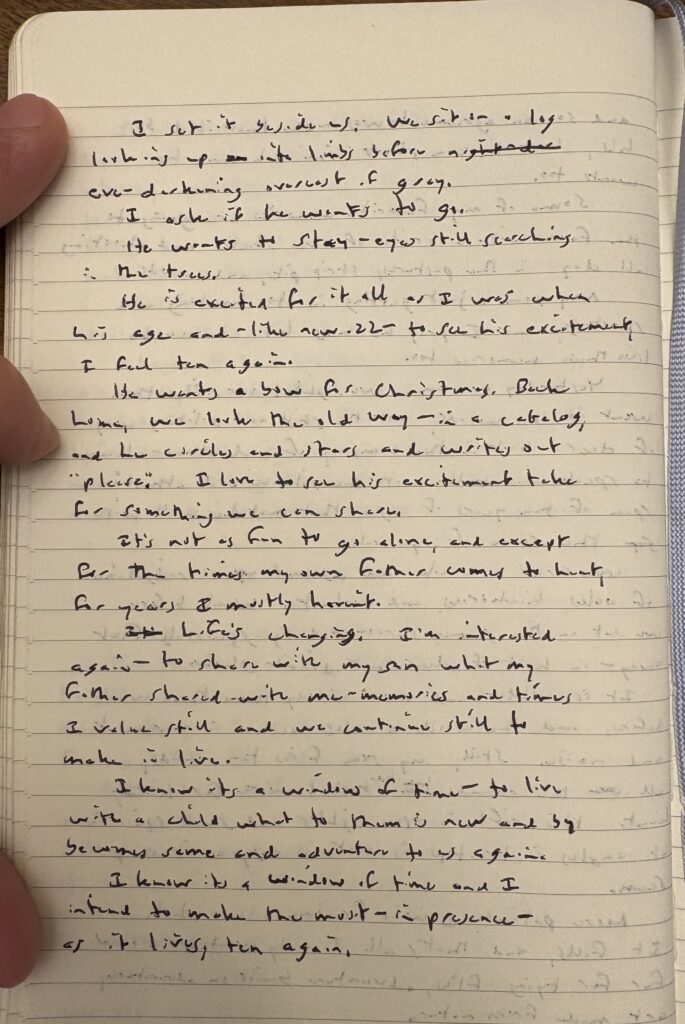 I set it beside us. We sit on a log
looking up into limbs before
eve-darkening overcast of gray.
I ask if he wants to go.
He wants to stay-eyes still searching
in the trees.
He is excited for it all as I was when
his age and-like new .22- to see his excitement,
I feel ten again.
He wants a bow for Christmas. Back
home, we look the old way-in a catalog,
and he circles and stars and writes out
"please". I love to see his excitement take
for something we can share.
It's not as fun to go alone, and except
for the times my own father comes to hunt,
for years I mostly haven't.
Life's changing. I'm interested
again-to share with my son what my
father shared with me-memories and times
I value still and we continue still to
make in live.
I know its a window of time-to live
with a child what to them is new and by
becomes same and adventure to us again.
I know its a window of time and I
intend to make the most-in presence-
as it lives, ten again.